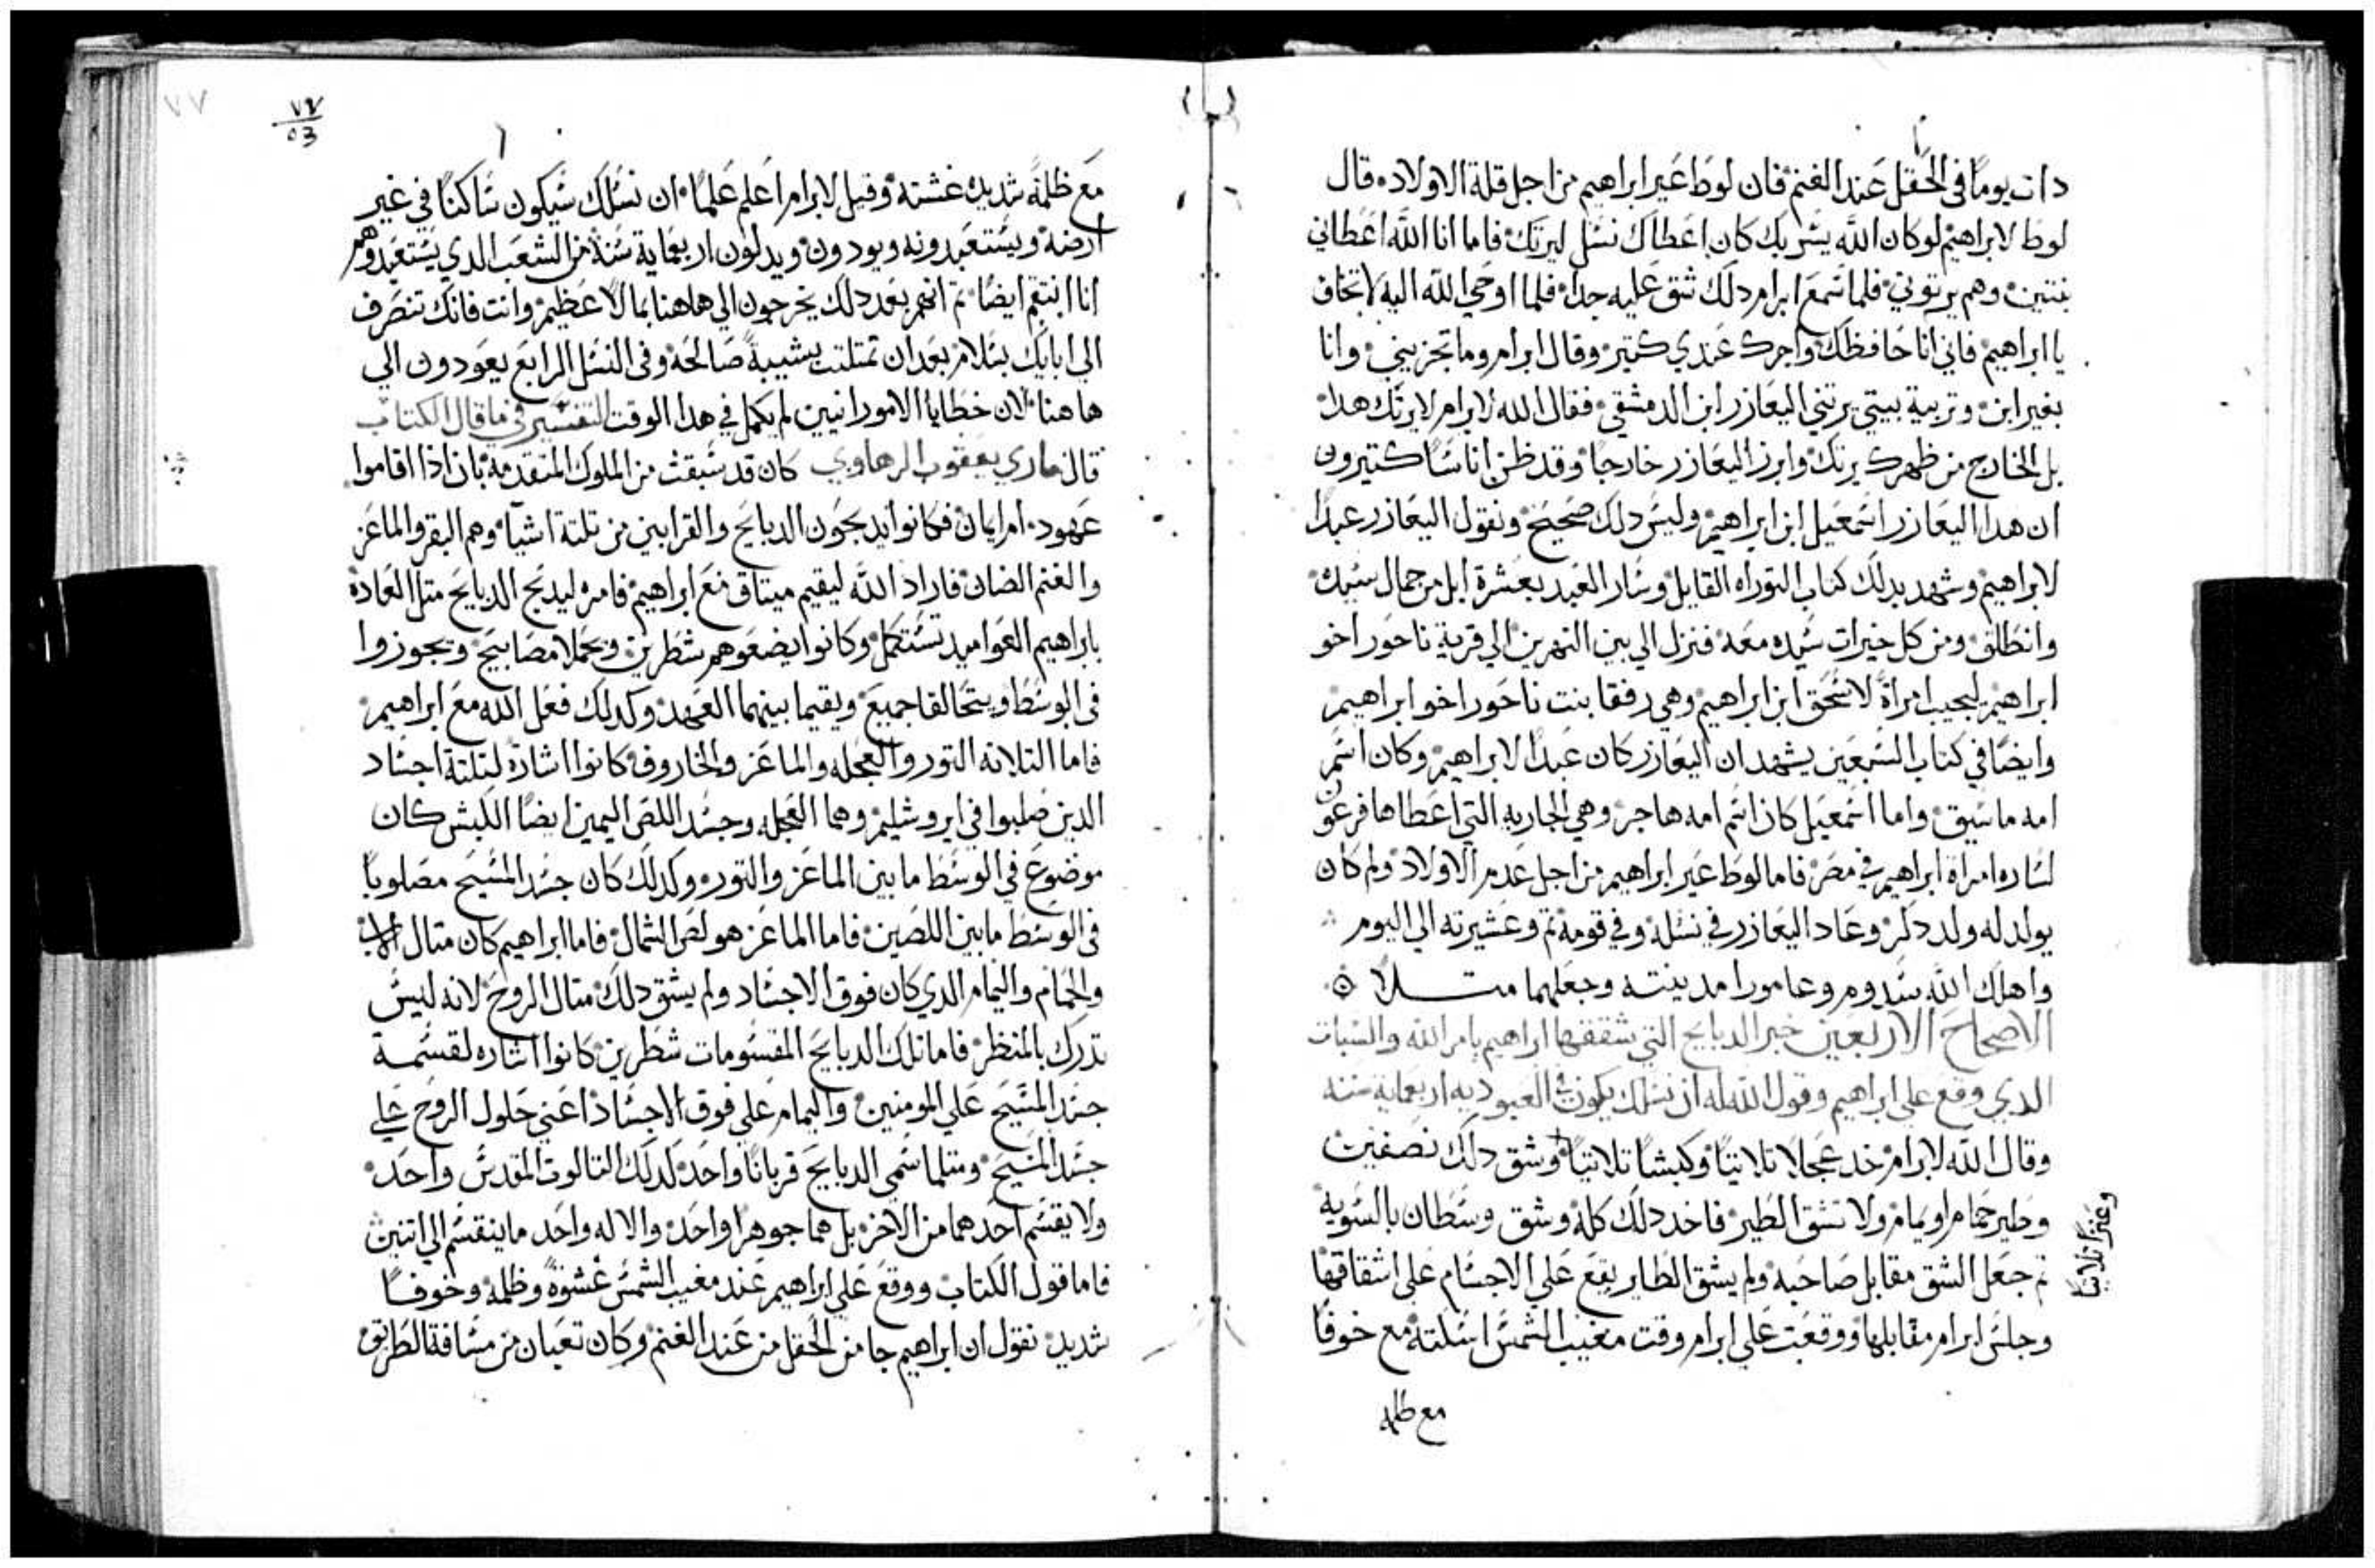 دات يومًا في الحقل عند الغنم فان لوط عير ابراهيم من اجل قلة الاولاد. قال
لوط لابراهيم لو كان الله يشر بك كان اعطاك نسل ليرتك. فاما انا الله اعطاني
بنتين. وهم يرتوني. فلما سمع ابرام دلك شق عليه جدا. فلما اوحي الله اليه لا تخاف
يا ابراهيم فاني انا حافظك واجرك عندي كتير وقال ابرام وما تجزيني. وانا
بغير ابن وتربية بيتي يرتني اليعازر ابن الدمشقي فقال الله لابرام لا يرتك هدا
بل الخارج من ظهرك يرتك وابرز اليعازر خارجًا وقد ظن اناسًا كتيرون
ان هدا اليعازر اسمعيل ابن ابراهيم وليس دلك صحيح ونقول اليعازر عبدًا
لابراهيم وشهد بدلك كتاب التوراه القايل وسار العبد بعشرة ابل من جمال سيده
وانطلق ومن كل خيرات سيده معه فنزل الي بين النهرين الي قرية ناحور اخو
ابراهيم ليجيب امراة لاسحق ابن ابراهيم وهي رفقا بنت ناحور اخو ابراهيم
وايضًا في كتاب السبعين يشهد ان اليعازر كان عبدًا لابراهيم وكان اسم
امه ماسيق واما اسمعيل كان اسم امه هاجر وهي الجاريه التي اعطاها فرعون
لساره امراة ابراهيم في مصر فاما لوط عير ابراهيم من اجل عدم الاولاد ولم كان
يولد له ولد دكر وعاد اليعازر في نسله وفي قومه تم وعشيرته الي اليوم
واهلك الله سدوم وعامورا مدينته وجعلهما متلا
الاصحاح الاربعين خبر الدبايح التي شققها ابراهيم بامر الله والسبات
الدي وقع علي ابراهيم وقول الله له ان نسلك يكون في العبوديه اربعماية سنه
وقال الله لابرام خد عجلا تلاتيًا وكبشًا تلاتيًا وشق دلك نصفين
وعنزًا تلاتيًا
وطير حمام او يمام ولا تشق الطير فاخد دلك كله وشق وسطان بالسويه
تم جعل الشق مقابل صاحبه ولم يشق الطاير يقع علي الاجسام علي اشقاقها
وجلس ابرام مقابلها ووقعت علي ابرام وقت مغيب الشمس اسلته مع خوفًا
مع ظلمه
٧٧
٧٧
٥٣
مع ظلمة شديده غشته وقيل لابرام اعلم علمًا ان نسلك سيكون ساكنًا في غير
ارضه ويستعبدونه ويودون ويدلون اربعماية سنة من الشعب الدي يستعبدوهم
انا انتقم ايضًا تم انهم بعد دلك يخرجون الي هاهنا بمالا عظيم وانت فانك تنصرف
الي ابايك بسلام بعد ان تمتلت بشيبة صالحه وفي النسل الرابع يعودون الي
هاهنا لان خطايا الامورانيين لم يكمل في هدا الوقت التفسير في ما قال الكتاب
قال ماري يعقوب الرهاوي كان قد سبقت من الملوك المتقدمة بان اذا اقاموا
عهود ام ايمان فكانوا يدبحون الدبايح والقرابين من تلتة اشيا وهم البقر والماعز
والغنم الضان فاراد الله ليقيم ميتاق مع ابراهيم فامره ليدبح الدبايح متل العادة
بابراهيم العواميد تستكمل وكانوا يضعوهم شطرين وتحملا مصابيح وتجوزوا
في الوسط ويتحالفا جميع ويقيما بينهما العهد وكدلك فعل الله مع ابراهيم
فاما التلاته التور والعجله والماعز والخاروف كانوا اشارة لتلتة اجساد
الدين صلبوا في ايروشليم وهما العجله وجسد اللص اليمين ايضًا الكبش كان
موضوع في الوسط ما بين الماعز والتور وكدلك كان جسد المسيح مصلوبًا
في الوسط ما بين اللصين فاما الماعز هو لص الشمال فاما ابراهيم كان متال الاب
والحمام واليمام الدي كان فوق الاجساد ولم يشق دلك متال الروح لانه ليس
تدرك بالمنظر فاما تلك الدبايح المقسومات شطرين كانوا اشاره لقسمة
جسد المسيح علي المومنين واليمام علي فوق الاجساد اعني حلول الروح علي
جسد المسيح ومتلما سمي الدبايح قربانًا واحد لدلك التالوت المقدس واحد
ولا يقسم احدهما من الاخر بل هما جوهرا واحد والاله واحد ما ينقسم الي اتنين
فاما قول الكتاب ووقع علي ابراهيم عند مغيب الشمس غشوة وظلمه وخوفًا
شديد نقول ان ابراهيم جا من الحقل من عند الغنم وكان تعبان من مسافة الطريق